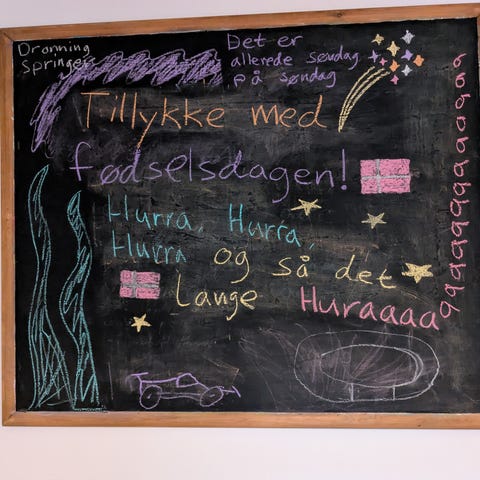 Dronning
Springer
Det er
allerede søndag
på søndag
Tillykke med
fødselsdagen!
Hurra, Hurra,
Hurra og så det
Lange Huraaaaaaaaaaaaaaaa